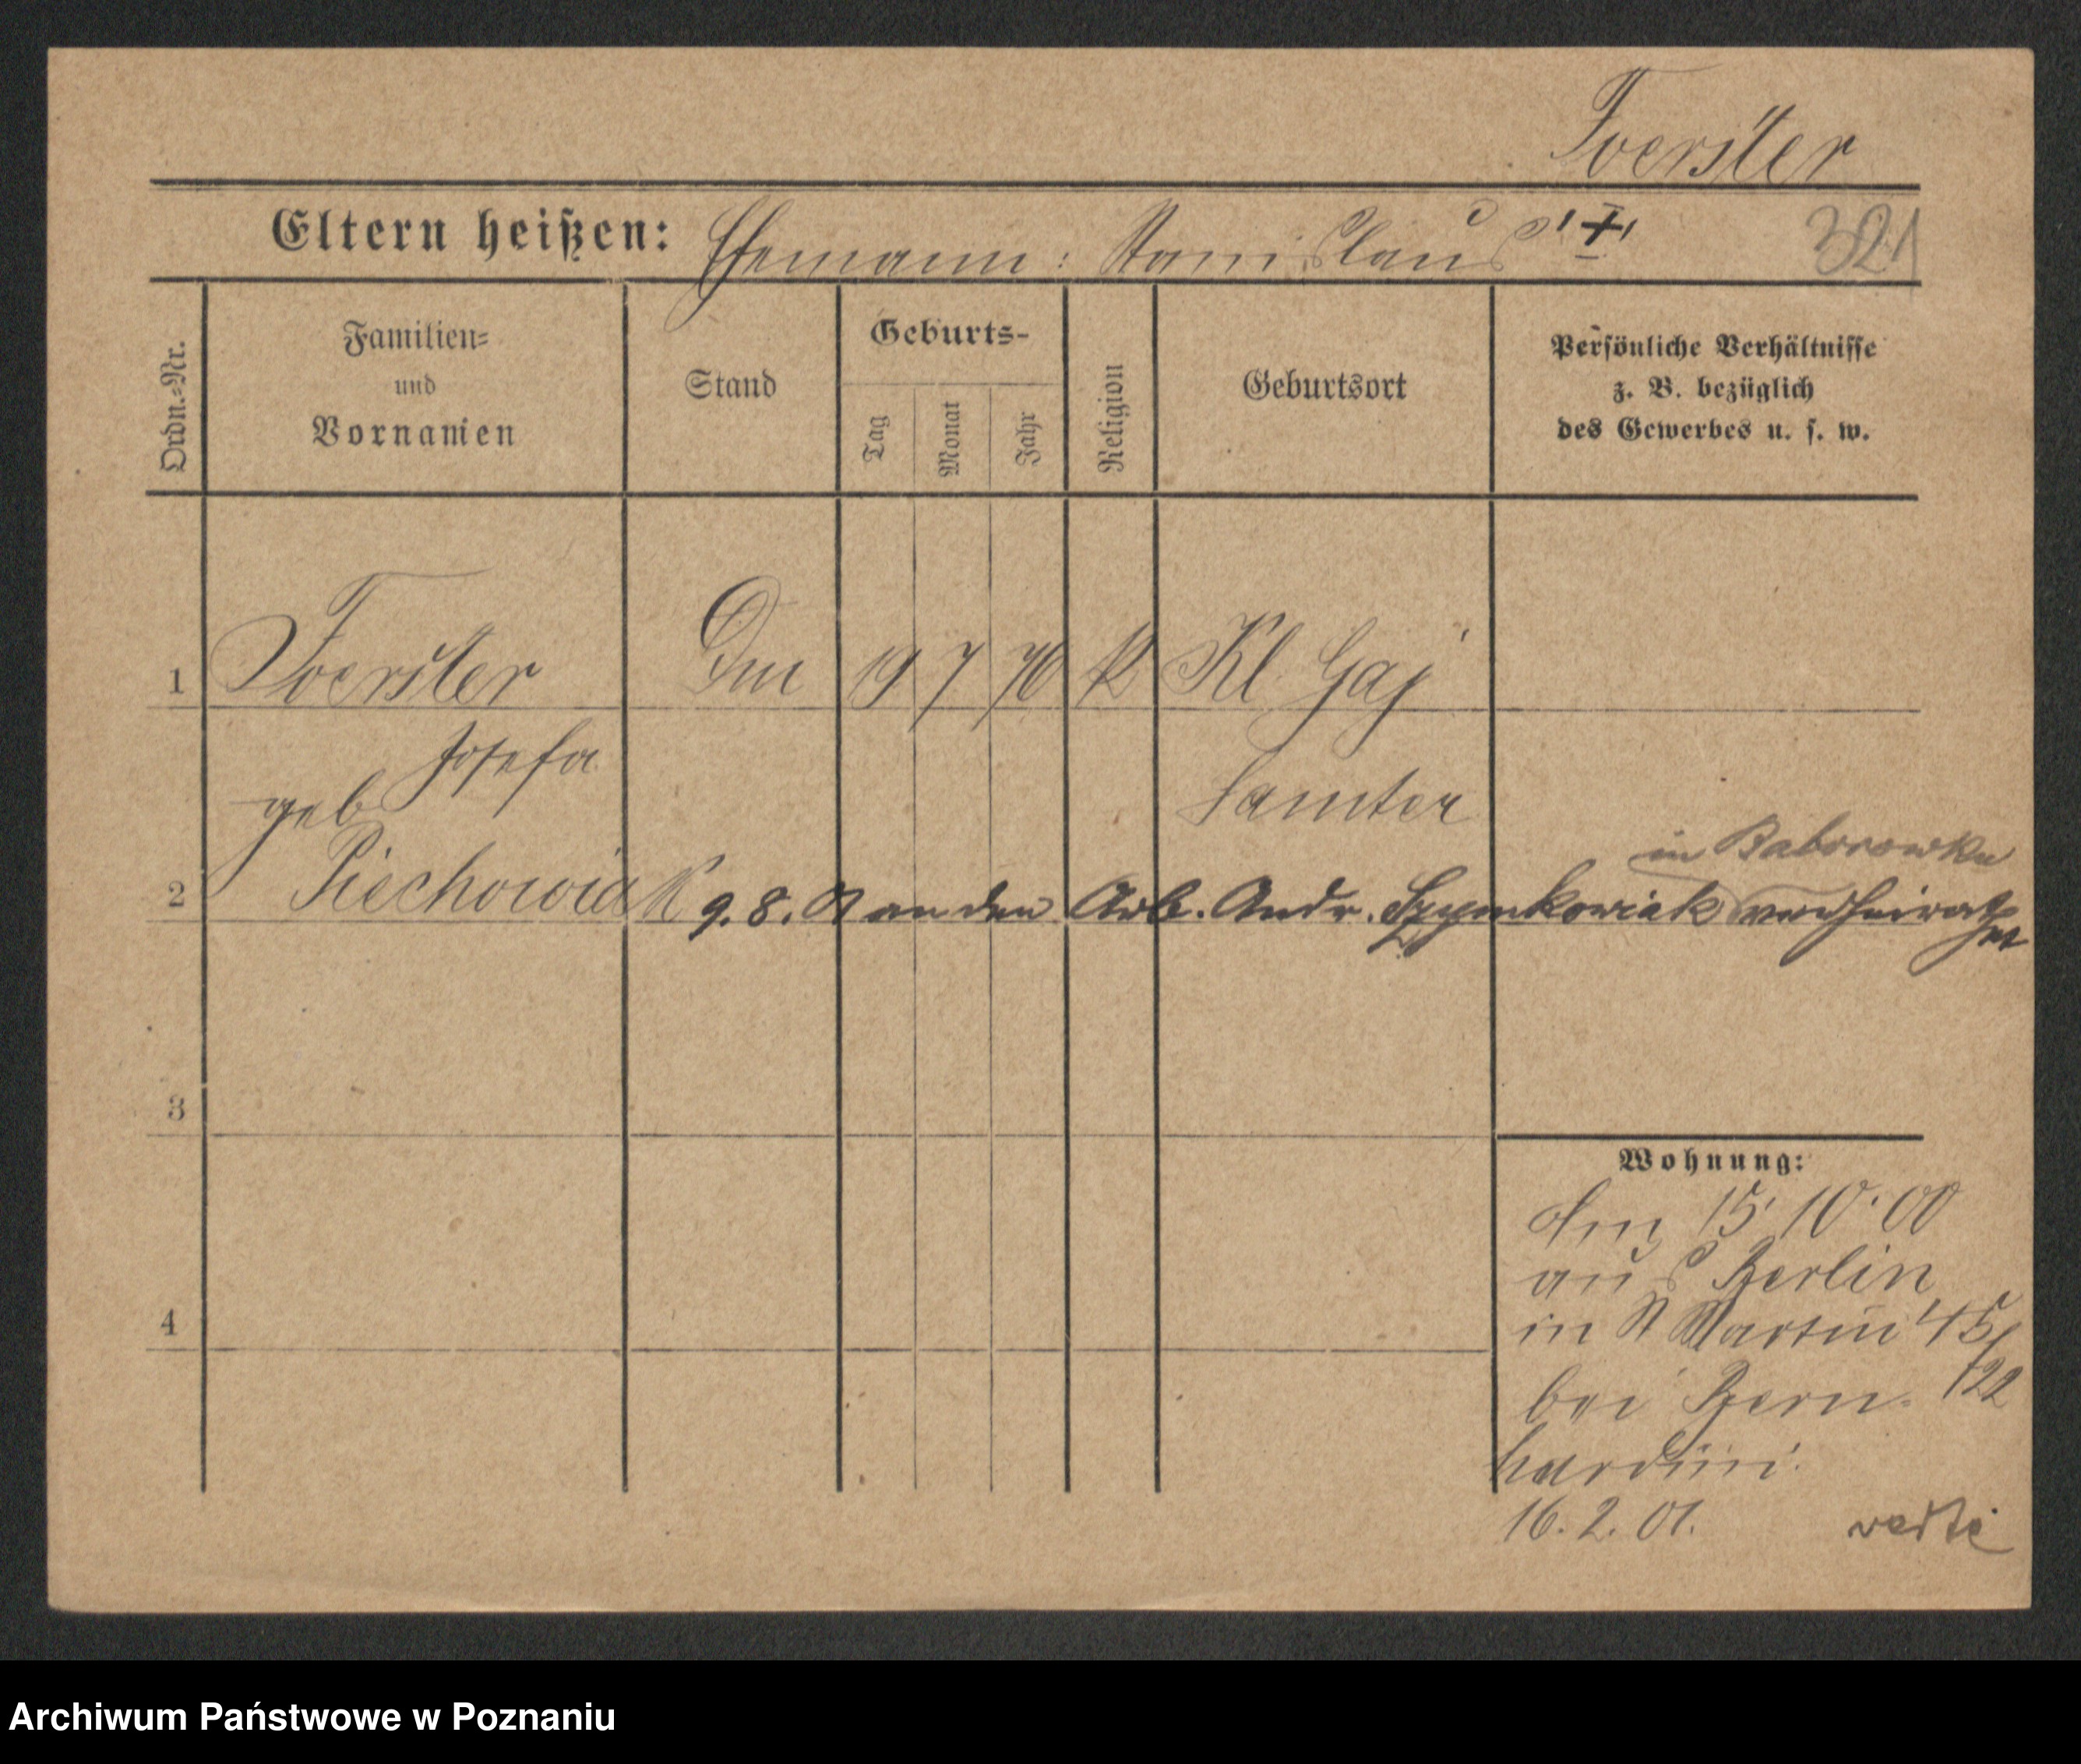 Foerster
Eltern heißen: Ehemann: Stanislaus +
321
Ordn.=Nr.
Familien=
und
Vornamen
Stand
Geburts-
Tag
Monat
Jahr
Religion
Geburtsort
Persönliche Verhältnisse
z. B. bezüglich
des Gewerbes u. s. w.
1 Foerster 19 7 76 K Kl. Gaj
Josefa
geb Samter
in Baborowko
2 Piechowiak 9. 8. an den Arb. Andr. Szymkowiak verheirathet
3
4
Wohnung:
Am 15. 10. 00
aus Berlin
in St Martin 45/
/22
bei Bern-
hardini.
16. 2. 01. verte
Archiwum Państwowe w Poznaniu